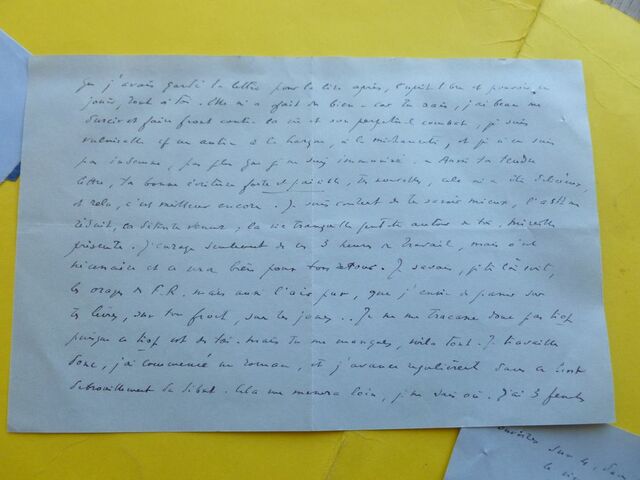 que j'avais gardé la lettre pour la lire après, l'esprit libre et pouvoir en
jouir, tout à toi. Elle m'a fait du bien. car tu sais, j'ai beau me
durcir et faire front contre la vie et son perpétuel combat, je suis
vulnérable à la hargne, à la méchanceté, et je n'en suis
pas indemne, pas plus que je ne suis immunisé. Aussi ta tendre
lettre, ta bonne écriture forte et paisible, tes nouvelles, cela m'a été délicieux,
et cela, c'est meilleur encore. Je suis content de te savoir mieux, l'asthme
réduit, la détente venue, la vie tranquille autour de toi,
présente. J'enrage seulement de ces 3 heures de travail, mais c'est
nécessaire et ce sera bien pour tous. Je savais, je te l'ai écrit,
les orages de P.R. mais aussi l'air pur, que j'envie de passer sur
tes lèvres, sur ton front, sur tes joues.. Je ne me tracasse donc pas trop
puisque ce trop est de toi. mais tu me manques, voilà tout. Je travaille
donc, j'ai commencé un roman, et j'avance régulièrement dans ce lent
débrouillement du début. Cela me mènera loin, je ne sais où. J'ai 3 
sur le